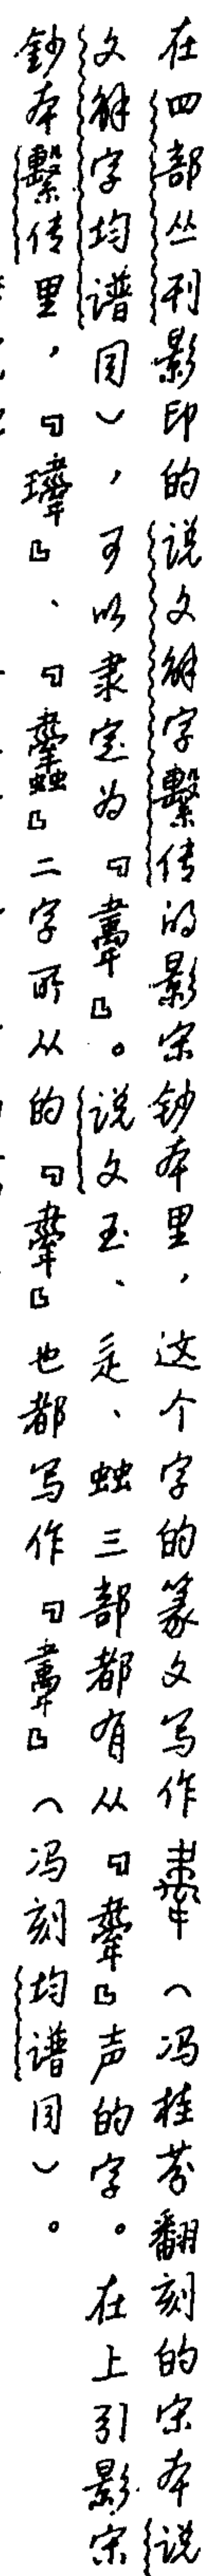 在四部丛刊影印的说文解字繫传的影宋钞本里，这个字的篆文写作（冯桂芬翻刻的宋本说
文解字均谱同），可以隶定为「」。说文玉、辵、䖵三部都有从「」声的字。在上引影宋
钞本繫传里，「」、「」二字所从的「」也都写作「」（冯刻均谱同）。